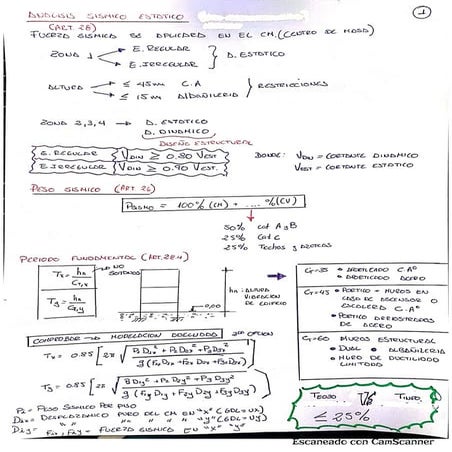 ANALISIS SISMICO ESTATICO
(ART. 28)
1
FUERZA SISMICA SE APLICADA EN EL CM. (CENTRO DE MASA)
ZONA 1
E. REGULAR
E. IRREGULAR
D. ESTATICO
ALTURA
≤ 45m C.A
≤ 15m ALBAÑILERIA
RESTRICCIONES
ZONA 2,3,4 → D. ESTATICO
D. DINAMICO
DISEÑO ESTRUCTURAL
E. REGULAR VDIN ≥ 0.80 VEST.
E. IRREGULAR VDIN ≥ 0.90 VEST.
DONDE: VDIN = CORTANTE DINAMICO
VEST = CORTANTE ESTATICO
PESO SISMICO (ART. 26)
= 100% (CM) + .... %(CV)
50% Cat A y B
25% Cat C
25% Techos y azoteas
PERIODO FUNDAMENTAL (ART. 28.4)
Tx = hn / CT,x
Ty = hn / CT,y
NO SOTANOS
±0.00
hn: ALTURA
VIBRACION
DE EDIFICIO
CT=35 • APORTICADO C.Aº
• APORTICADO ACERO
CT=45 • PORTICO + MUROS EN
CAJA DE ASCENSOR O
ESCALERA C.Aº
• PORTICO ARRIOSTRADOS
DE ACERO
CT=60 MUROS ESTRUCTURAL
• DUAL • ALBAÑILERIA
• MURO DE DUCTILIDAD
LIMITADA
COMPROBAR → MODELACION 2da OPCION
Tx = 0.85 [2π √ P1 D1x² + P2 D2x² + P3 D3x² / g (F1x D1x + F2x D2x + F3x D3x)]
Ty = 0.85 [2π √ P1 D1y² + P2 D2y² + P3 D3y² / g (F1y D1y + F2y D2y + F3y D3y)]
VS
≤ 25%
= PESO SISMICO POR PISO
= DESPLAZAMIENTO PURO DEL CM EN "X" (GDL = UX)
" " " "Y" (GDL = UY)
= FUERZA SISMICA EN "X" "Y"
Escaneado con CamScanner